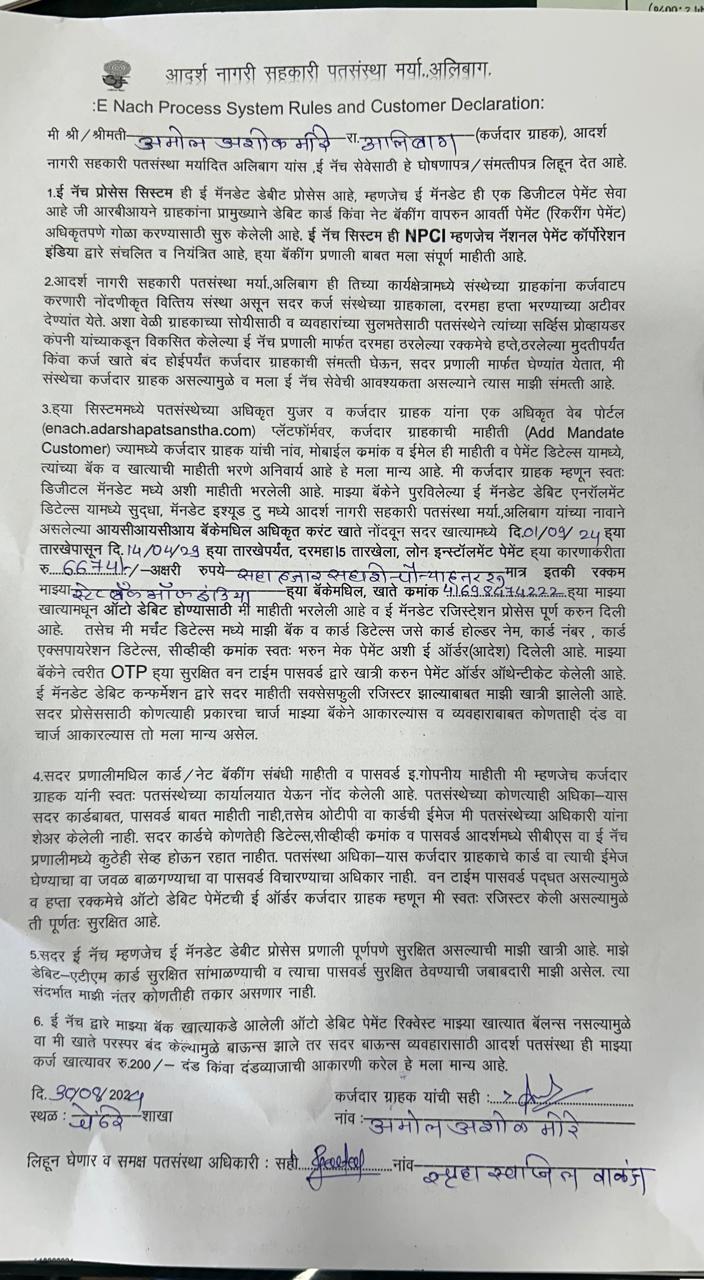 आदर्श नागरी सहकारी पतसंस्था मर्या.,अलिबाग.
:E Nach Process System Rules and Customer Declaration:
मी श्री/श्रीमती-अमोल अशोक मोरे रा.अलिबाग-(कर्जदार ग्राहक), आदर्श
नागरी सहकारी पतसंस्था मर्यादित अलिबाग यांस ,ई नॅच सेवेसाठी हे घोषणापत्र/संमत्तीपत्र लिहून देत आहे.
1.ई नॅच प्रोसेस सिस्टम ही ई मॅनडेट डेबीट प्रोसेस आहे, म्हणजेच ई मॅनडेट ही एक डिजिटल पेमेंट सेवा
आहे जी आरबीआयने ग्राहकांना प्रामुख्याने डेबिट कार्ड किंवा नेट बॅकींग वापरुन आवर्ती पेमेंट (रिकरींग पेमेंट)
अधिकृतपणे गोळा करण्यासाठी सुरु केलेली आहे. ई नॅच सिस्टम ही NPCI म्हणजेच नॅशनल पेमेंट कॉर्पोरेशन
इंडिया द्वारे संचलित व नियंत्रित आहे, हया बॅकींग प्रणाली बाबत मला संपूर्ण माहीती आहे.
2.आदर्श नागरी सहकारी पतसंस्था मर्या.,अलिबाग ही तिच्या कार्यक्षेत्रामध्ये संस्थेच्या ग्राहकांना कर्जवाटप
करणारी नोंदणीकृत वित्तिय संस्था असून सदर कर्ज संस्थेच्या ग्राहकाला, दरमहा हप्ता भरण्याच्या अटीवर
देण्यांत येते. अशा वेळी ग्राहकाच्या सोयीसाठी व व्यवहारांच्या सुलभतेसाठी पतसंस्थेने त्यांच्या सर्व्हिस प्रोव्हायडर
कंपनी यांच्याकडून विकसित केलेल्या ई नॅच प्रणाली मार्फत दरमहा ठरलेल्या रक्कमेचे हप्ते,ठरलेल्या मुदतीपर्यंत
किंवा कर्ज खाते बंद होईपर्यंत कर्जदार ग्राहकाची संमत्ती घेऊन, सदर प्रणाली मार्फत घेण्यांत येतात, मी
संस्थेचा कर्जदार ग्राहक असल्यामुळे व मला ई नॅच सेवेची आवश्यकता असल्याने त्यास माझी संमत्ती आहे.
3.हया सिस्टममध्ये पतसंस्थेच्या अधिकृत युजर व कर्जदार ग्राहक यांना एक अधिकृत वेब पोर्टल
(enach.adarshapatsanstha.com) प्लॅटफॉर्मवर, कर्जदार ग्राहकाची माहीती (Add Mandate
Customer) ज्यामध्ये कर्जदार ग्राहक यांची नांव, मोबाईल क्रमांक व ईमेल ही माहीती व पेमेंट डिटेल्स यामध्ये,
त्यांच्या बॅक व खात्याची माहीती भरणे अनिवार्य आहे हे मला मान्य आहे. मी कर्जदार ग्राहक म्हणून स्वतः
डिजीटल मॅनडेट मध्ये अशी माहीती भरलेली आहे. माझ्या बॅकेने पुरविलेल्या ई मॅनडेट डेबिट एनरॉलमेंट
डिटेल्स यामध्ये सुद्धा, मॅनडेट इश्यूड टु मध्ये आदर्श नागरी सहकारी पतसंस्था मर्या.अलिबाग यांच्या नावाने
असलेल्या आयसीआयसीआय बॅकेमधिल अधिकृत करंट खाते नोंदवून सदर खात्यामध्ये दि.01/09/24 हया
तारखेपासून दि.14/04/29 हया तारखेपर्यंत, दरमहा 15 तारखेला, लोन इन्स्टॉलमेंट पेमेंट हया कारणाकरीता
रु.6674/-/-अक्षरी रुपये-सहा हजार सहाशे चौऱ्याहत्तर मात्र इतकी रक्कम
माझ्या स्टेट बँक ऑफ इंडिया हया बॅकेमधिल, खाते क्रमांक 41698474222 हया माझ्या
खात्यामधून ऑटो डेबिट होण्यासाठी मी माहीती भरलेली आहे व ई मॅनडेट रजिस्ट्रेशन प्रोसेस पूर्ण करुन दिली
आहे. तसेच मी मर्चंट डिटेल्स मध्ये माझी बॅक व कार्ड डिटेल्स जसे कार्ड होल्डर नेम, कार्ड नंबर , कार्ड
एक्सपायरेशन डिटेल्स, सीव्हीव्ही क्रमांक स्वतः भरुन मेक पेमेंट अशी ई ऑर्डर(आदेश) दिलेली आहे. माझ्या
बॅकेने त्वरीत OTP हया सुरक्षित वन टाईम पासवर्ड द्वारे खात्री करुन पेमेंट ऑर्डर ऑथेन्टीकेट केलेली आहे.
ई मॅनडेट डेबिट कन्फर्मेशन द्वारे सदर माहीती सक्सेसफुली रजिस्टर झाल्याबाबत माझी खात्री झालेली आहे.
सदर प्रोसेससाठी कोणत्याही प्रकारचा चार्ज माझ्या बॅकेने आकारल्यास व व्यवहाराबाबत कोणताही दंड वा
चार्ज आकारल्यास तो मला मान्य असेल.
4.सदर प्रणालीमधिल कार्ड/नेट बॅकींग संबंधी माहीती व पासवर्ड इ.गोपनीय माहीती मी म्हणजेच कर्जदार
ग्राहक यांनी स्वतः पतसंस्थेच्या कार्यालयात येऊन नोंद केलेली आहे. पतसंस्थेच्या कोणत्याही अधिका–यास
सदर कार्डबाबत, पासवर्ड बाबत माहीती नाही,तसेच ओटीपी वा कार्डची ईमेज मी पतसंस्थेच्या अधिकारी यांना
शेअर केलेली नाही. सदर कार्डचे कोणतेही डिटेल्स,सीव्हीव्ही क्रमांक व पासवर्ड आदर्शमध्ये सीबीएस वा ई नॅच
प्रणालीमध्ये कुठेही सेव्ह होऊन रहात नाहीत. पतसंस्था अधिका–यास कर्जदार ग्राहकाचे कार्ड वा त्याची ईमेज
घेण्याचा वा जवळ बाळगण्याचा वा पासवर्ड विचारण्याचा अधिकार नाही. वन टाईम पासवर्ड पद्धत असल्यामुळे
व हप्ता रक्कमेचे ऑटो डेबिट पेमेंटची ई ऑर्डर कर्जदार ग्राहक म्हणून मी स्वतः रजिस्टर केली असल्यामुळे
ती पूर्णतः सुरक्षित आहे.
5.सदर ई नॅच म्हणजेच ई मॅनडेट डेबीट प्रोसेस प्रणाली पूर्णपणे सुरक्षित असल्याची माझी खात्री आहे. माझे
डेबिट–एटीएम कार्ड सुरक्षित सांभाळण्याची व त्याचा पासवर्ड सुरक्षित ठेवण्याची जबाबदारी माझी असेल. त्या
संदर्भात माझी नंतर कोणतीही तक्रार असणार नाही.
6. ई नॅच द्वारे माझ्या बॅक खात्याकडे आलेली ऑटो डेबिट पेमेंट रिक्वेस्ट माझ्या खात्यात बॅलन्स नसल्यामुळे
वा मी खाते परस्पर बंद केल्यामुळे बाऊन्स झाले तर सदर बाऊन्स व्यवहारासाठी आदर्श पतसंस्था ही माझ्या
कर्ज खात्यावर रु.200/– दंड किंवा दंडव्याजाची आकारणी करेल हे मला मान्य आहे.
दि.30/08/2024 कर्जदार ग्राहक यांची सही :
स्थळ : चेंढरे शाखा नांव :-अमोल अशोक मोरे
लिहून घेणार व समक्ष पतसंस्था अधिकारी : सही नांव-स्पृहा स्वप्निल वाळंज